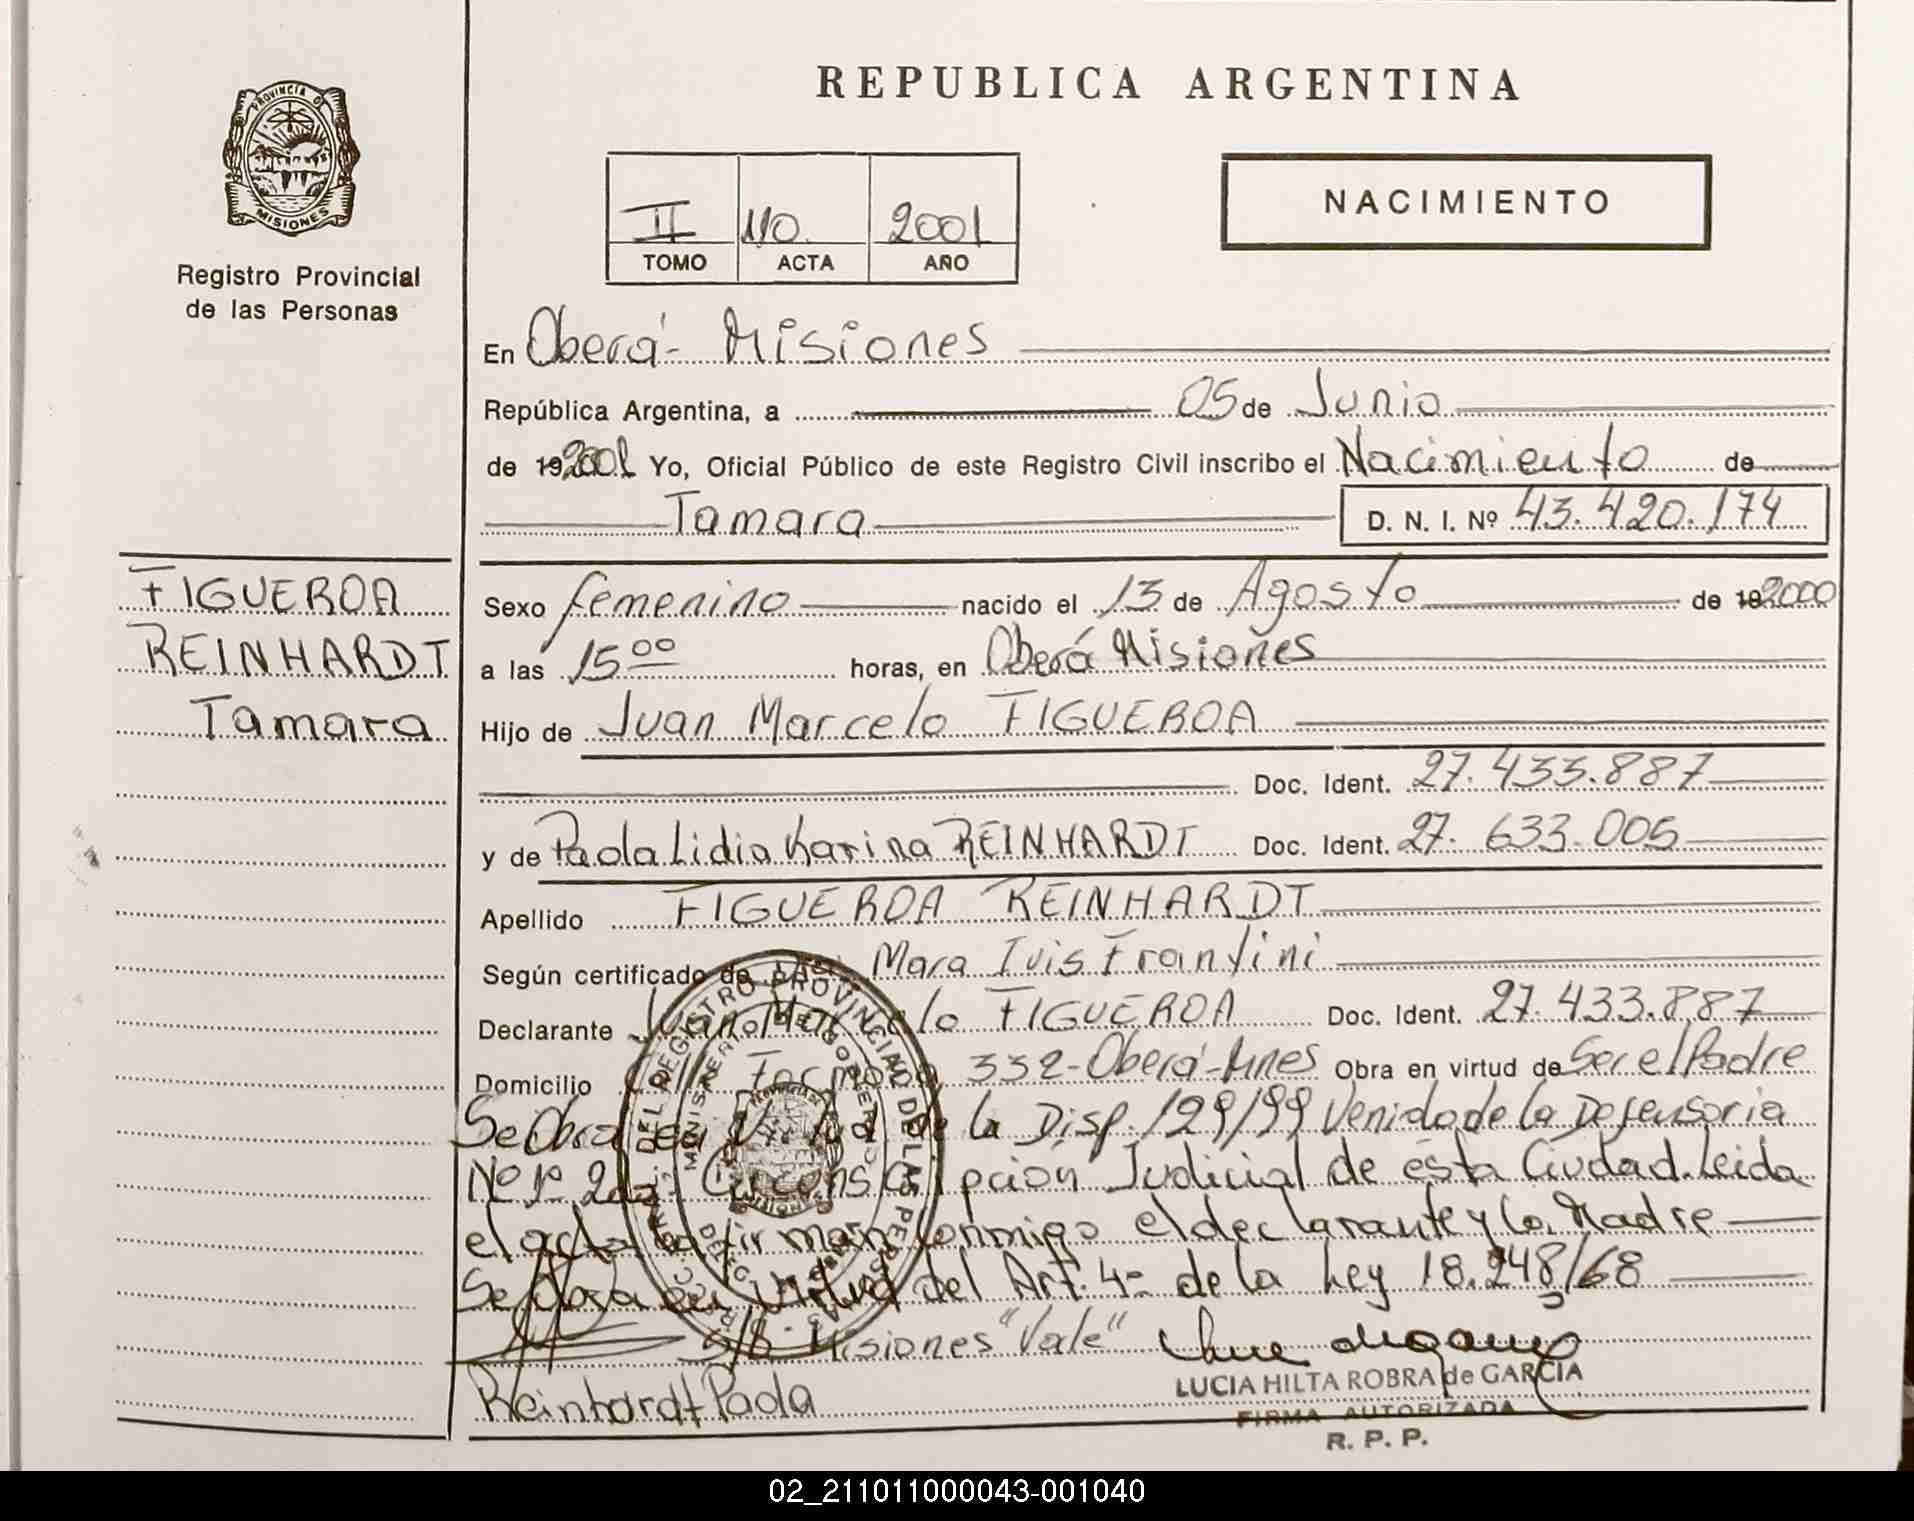 REPUBLICA ARGENTINA
PROVINCIA D
MISIONES
Registro Provincial
de las Personas
NACIMIENTO
II 110. 2001
TOMO ACTA AÑO
En Oberá - Misiones
República Argentina, a 05 de Junio
de 19 2001 Yo, Oficial Público de este Registro Civil inscribo el Nacimiento de
Tamara D. N. I. Nº 43.420.174
FIGUEROA
REINHARDT
Tamara
Sexo femenino nacido el 13 de Agosto de 19 2000
a las 15 00 horas, en Oberá Misiones
Hijo de Juan Marcelo FIGUEROA
Doc. Ident. 27.433.887
y de Paola Lidia Karina REINHARDT Doc. Ident. 27.633.005
Apellido FIGUEROA REINHARDT
Según certificado de Mara Frantini
Declarante Juan Marcelo FIGUEROA Doc. Ident. 27.433.887
Domicilio Calle Formosa 332-Oberá-Mnes Obra en virtud de Ser el Padre
Se Obra en Virtud de la Disp. 129/99 Venido de la Defensoria
Nº 1º 2da. Circunscripción Judicial de esta Ciudad. Leida
el acta la firman conmigo el declarante y la Madre
Se Obra en virtud del Art. 4º de la Ley 18.248/68
S/B Misiones "Vale"
Reinhardt Paola
LUCIA HILTA ROBRA de GARCIA
FIRMA AUTORIZADA
R. P. P.
02_211011000043-001040